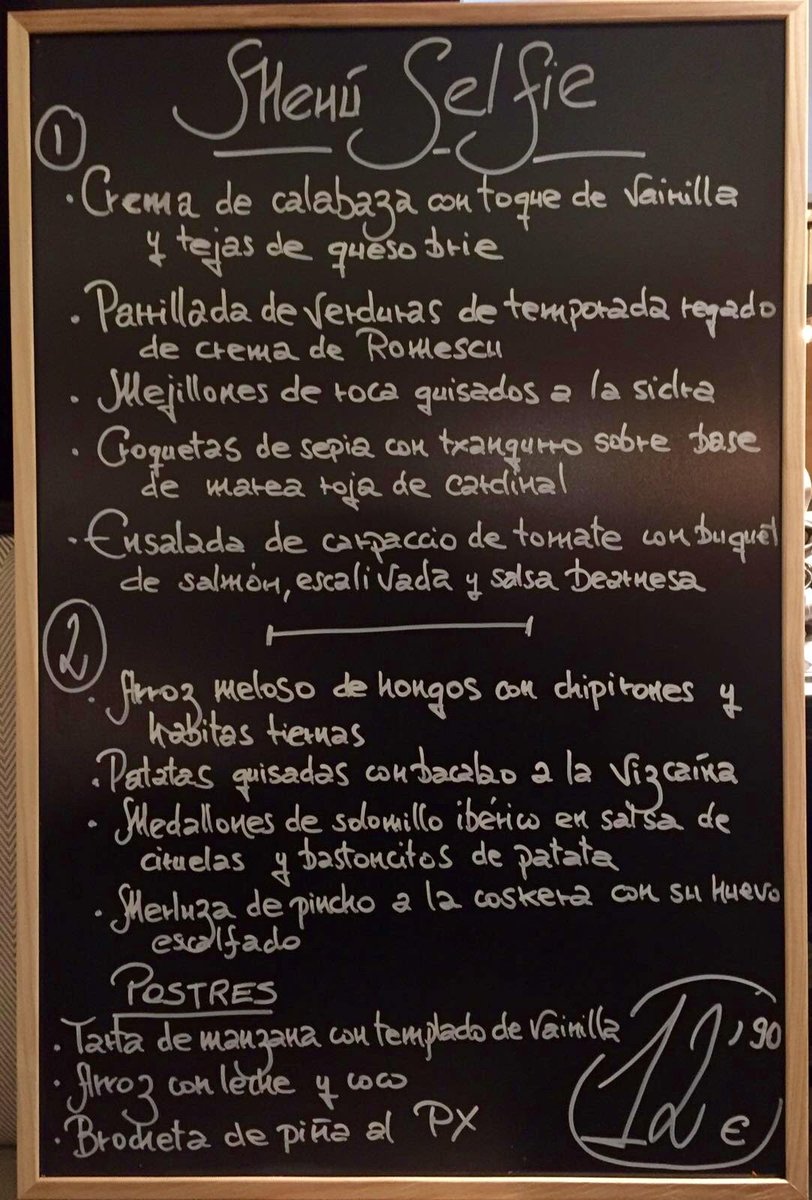 Menú Selfie
1
· Crema de calabaza con toque de vainilla
y tejas de queso brie
· Parrillada de verduras de temporada regado
de crema de Romescu
· Mejillones de roca guisados a la sidra
· Croquetas de sepia con txangurro sobre base
de marea roja de cardinal
· Ensalada de carpaccio de tomate con buquêt
de salmón, escalivada y salsa bearnesa
2
· Arroz meloso de hongos con chipirones y
habitas tiernas
· Patatas guisadas con bacalao a la Vizcaína
· Medallones de solomillo ibérico en salsa de
ciruelas y bastoncitos de patata
· Merluza de pincho a la coskera con su huevo
escalfado
POSTRES
· Tarta de manzana con templado de vainilla
· Arroz con leche y coco
· Brocheta de piña al PX
12,90 €